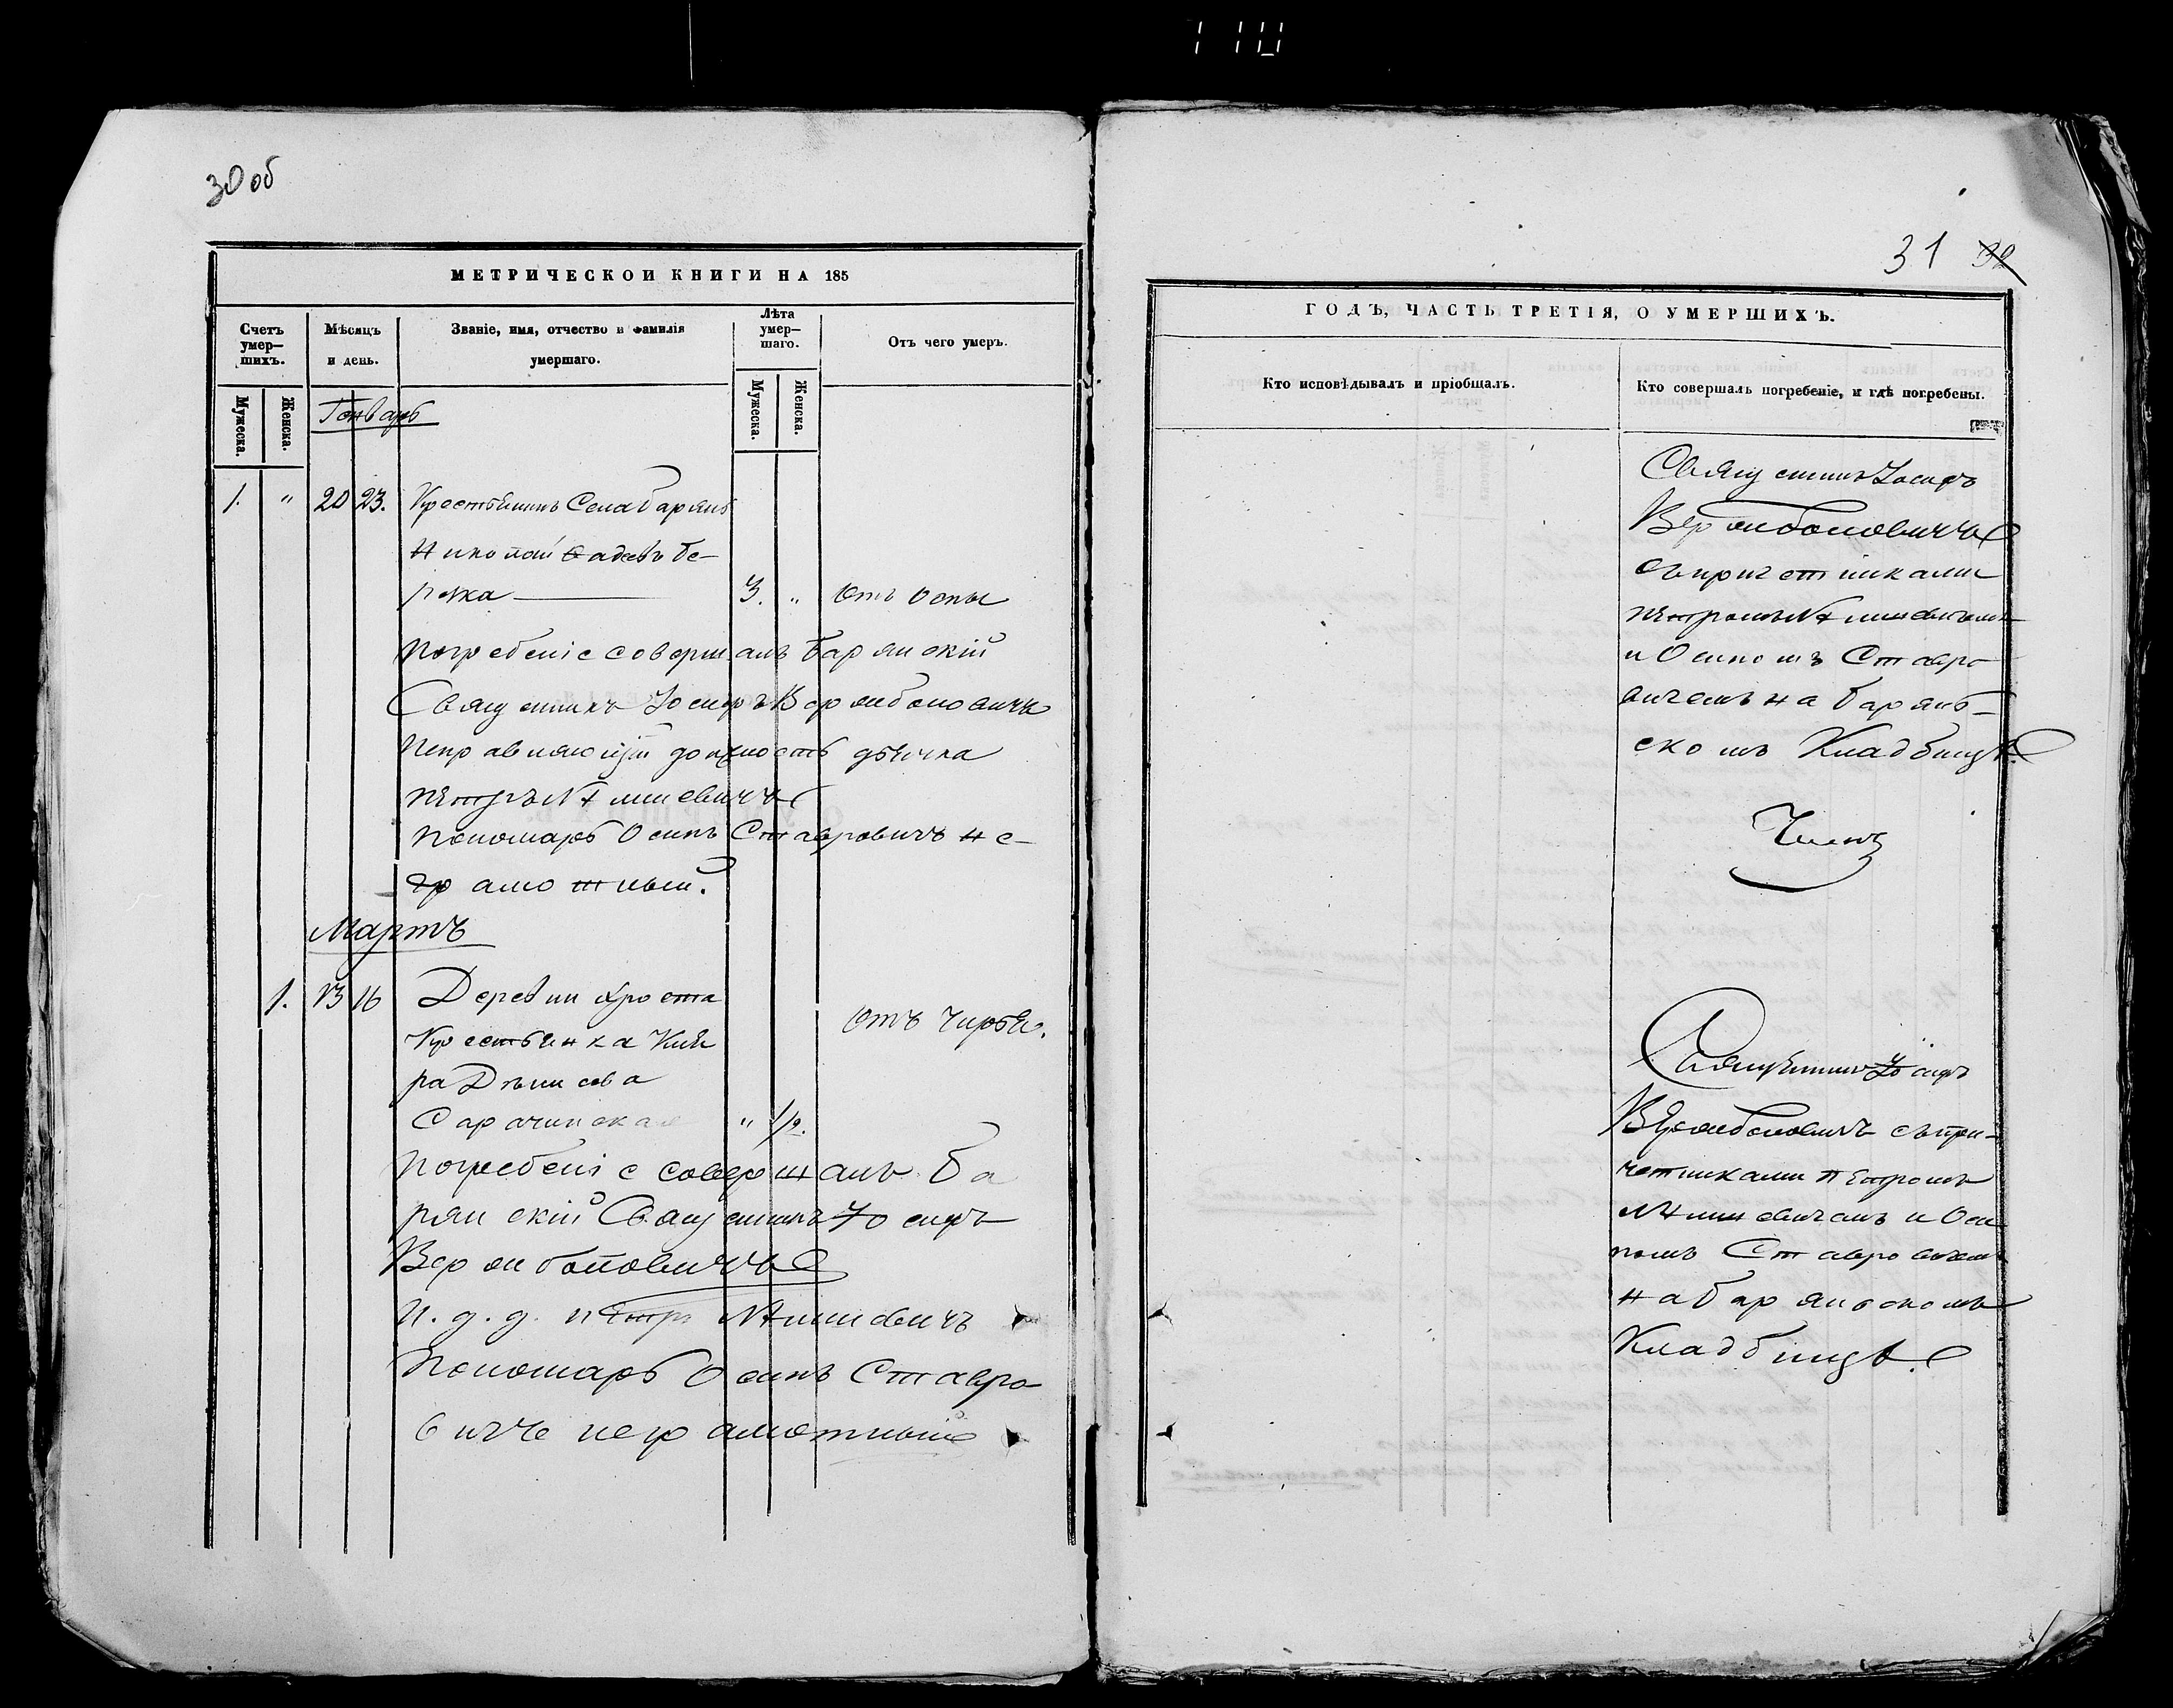 110
30 об
МЕТРИЧЕСКОИ КНИГИ НА 185
Счетъ умер–шихъ.
Мѣсяцъ и день.
Званіе, имя, отчество и фамилія умершаго.
Лѣта умер–шаго.
Отъ чего умеръ.
Мужеска.
Женска.
Мужеска.
Женска.
Генварь
1. " 20 23. Крестьянинъ Села Барянъ
Николай Фадеевъ Бе–
режка 3. " Отъ Оспы
Погребеніе совершалъ Барянскій
Священникъ Іосифъ Вержболовичъ
Исправляющій должность дьячка
Петръ
Пономарь Осипъ Ставровичъ не–
грамотный.
Мартъ
1. 13 16 Деревни Хроста
Крестьянка Кия
ра Денисова
Сорочинская " 1/2.
Отъ Чирья.
Погребеніе совершалъ Ба
рянскій Священникъ Іосифъ
Вержболовичъ
И. д. д. Петръ
Пономарь Осипъ Ставро
вичъ неграмотный
31 32
ГОДЪ, ЧАСТЬ ТРЕТІЯ, О УМЕРШИХЪ.
Кто исповѣдывалъ и пріобщалъ.
Кто совершалъ погребеніе, и гдѣ погребены.
Священникъ Іосифъ
Вержболовичъ
съ причетниками
Петромъ
и Осипомъ Ставро
вичемъ на Барянь–
скомъ Кладбищѣ.
Священникъ Іосифъ
Вержболовичъ съ при–
четниками Петромъ
и Оси
помъ Ставровичемъ
на Баряньскомъ
Кладбищѣ.